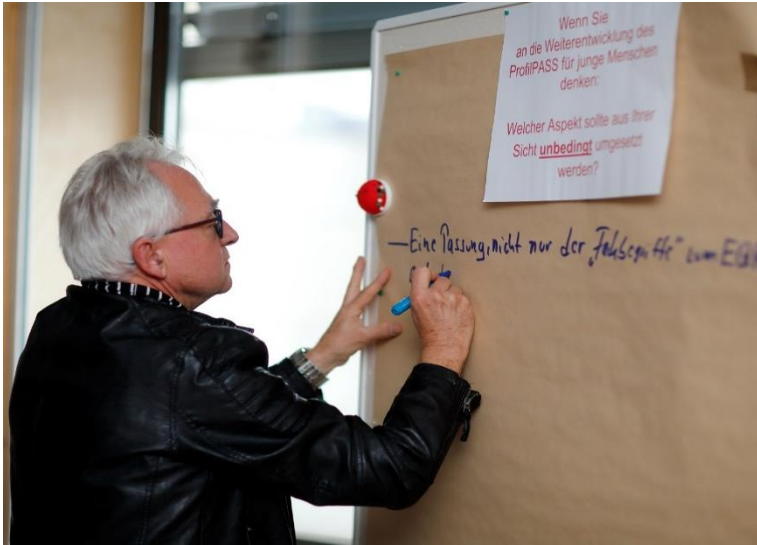 Wenn Sie
an die Weiterentwicklung des
ProfilPASS für junge Menschen
denken:
Welcher Aspekt sollte aus Ihrer
Sicht unbedingt umgesetzt
werden?
— Eine Passung, nicht nur der „ zum